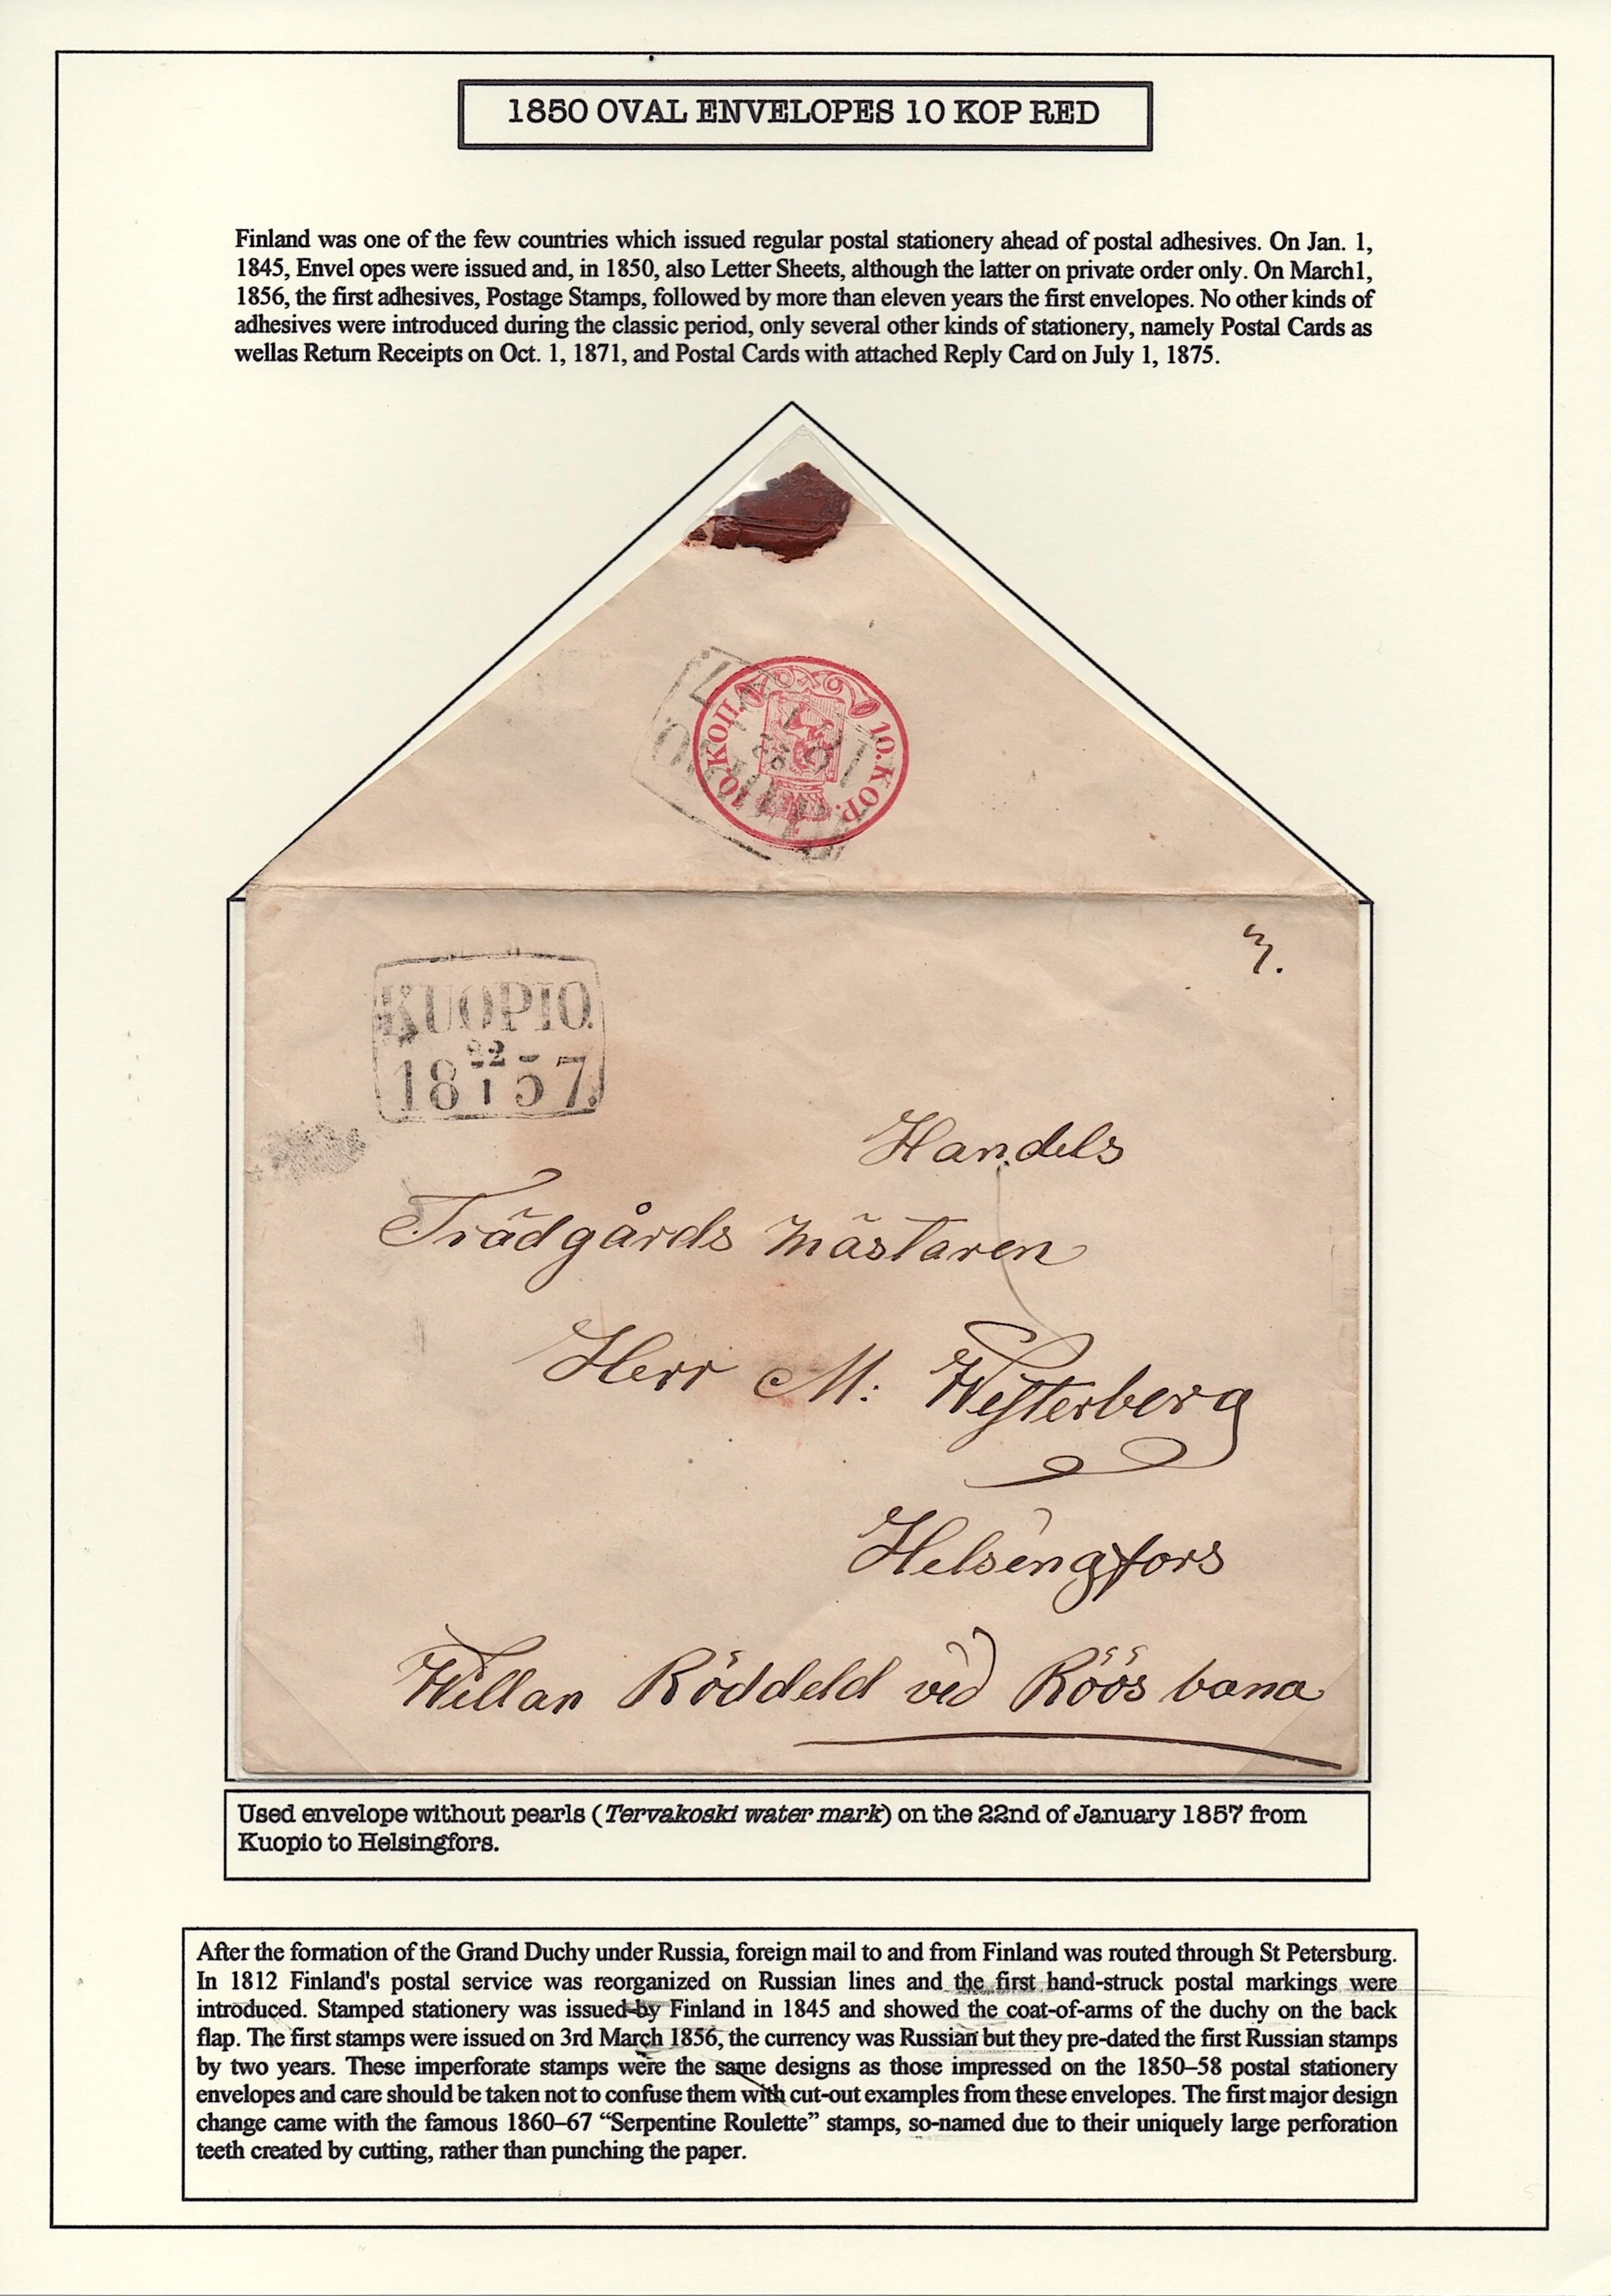 1850 OVAL ENVELOPES 10 KOP RED
Finland was one of the few countries which issued regular postal stationery ahead of postal adhesives. On Jan. 1,
1845, Envel opes were issued and, in 1850, also Letter Sheets, although the latter on private order only. On March1,
1856, the first adhesives, Postage Stamps, followed by more than eleven years the first envelopes. No other kinds of
adhesives were introduced during the classic period, only several other kinds of stationery, namely Postal Cards as
wellas Return Receipts on Oct. 1, 1871, and Postal Cards with attached Reply Card on July 1, 1875.
10.КОП.
10.KOP.
3.
KUOPIO.
22
18 1 57.
Handels
Trädgårds Mästaren
Herr M: Westerberg
Helsingfors
Willan Röddeld vid Röös bana
Used envelope without pearls (Tervakoski water mark) on the 22nd of January 1857 from
Kuopio to Helsingfors.
After the formation of the Grand Duchy under Russia, foreign mail to and from Finland was routed through St Petersburg.
In 1812 Finland's postal service was reorganized on Russian lines and the first hand-struck postal markings were
introduced. Stamped stationery was issued by Finland in 1845 and showed the coat-of-arms of the duchy on the back
flap. The first stamps were issued on 3rd March 1856, the currency was Russian but they pre-dated the first Russian stamps
by two years. These imperforate stamps were the same designs as those impressed on the 1850–58 postal stationery
envelopes and care should be taken not to confuse them with cut-out examples from these envelopes. The first major design
change came with the famous 1860–67 “Serpentine Roulette” stamps, so-named due to their uniquely large perforation
teeth created by cutting, rather than punching the paper.